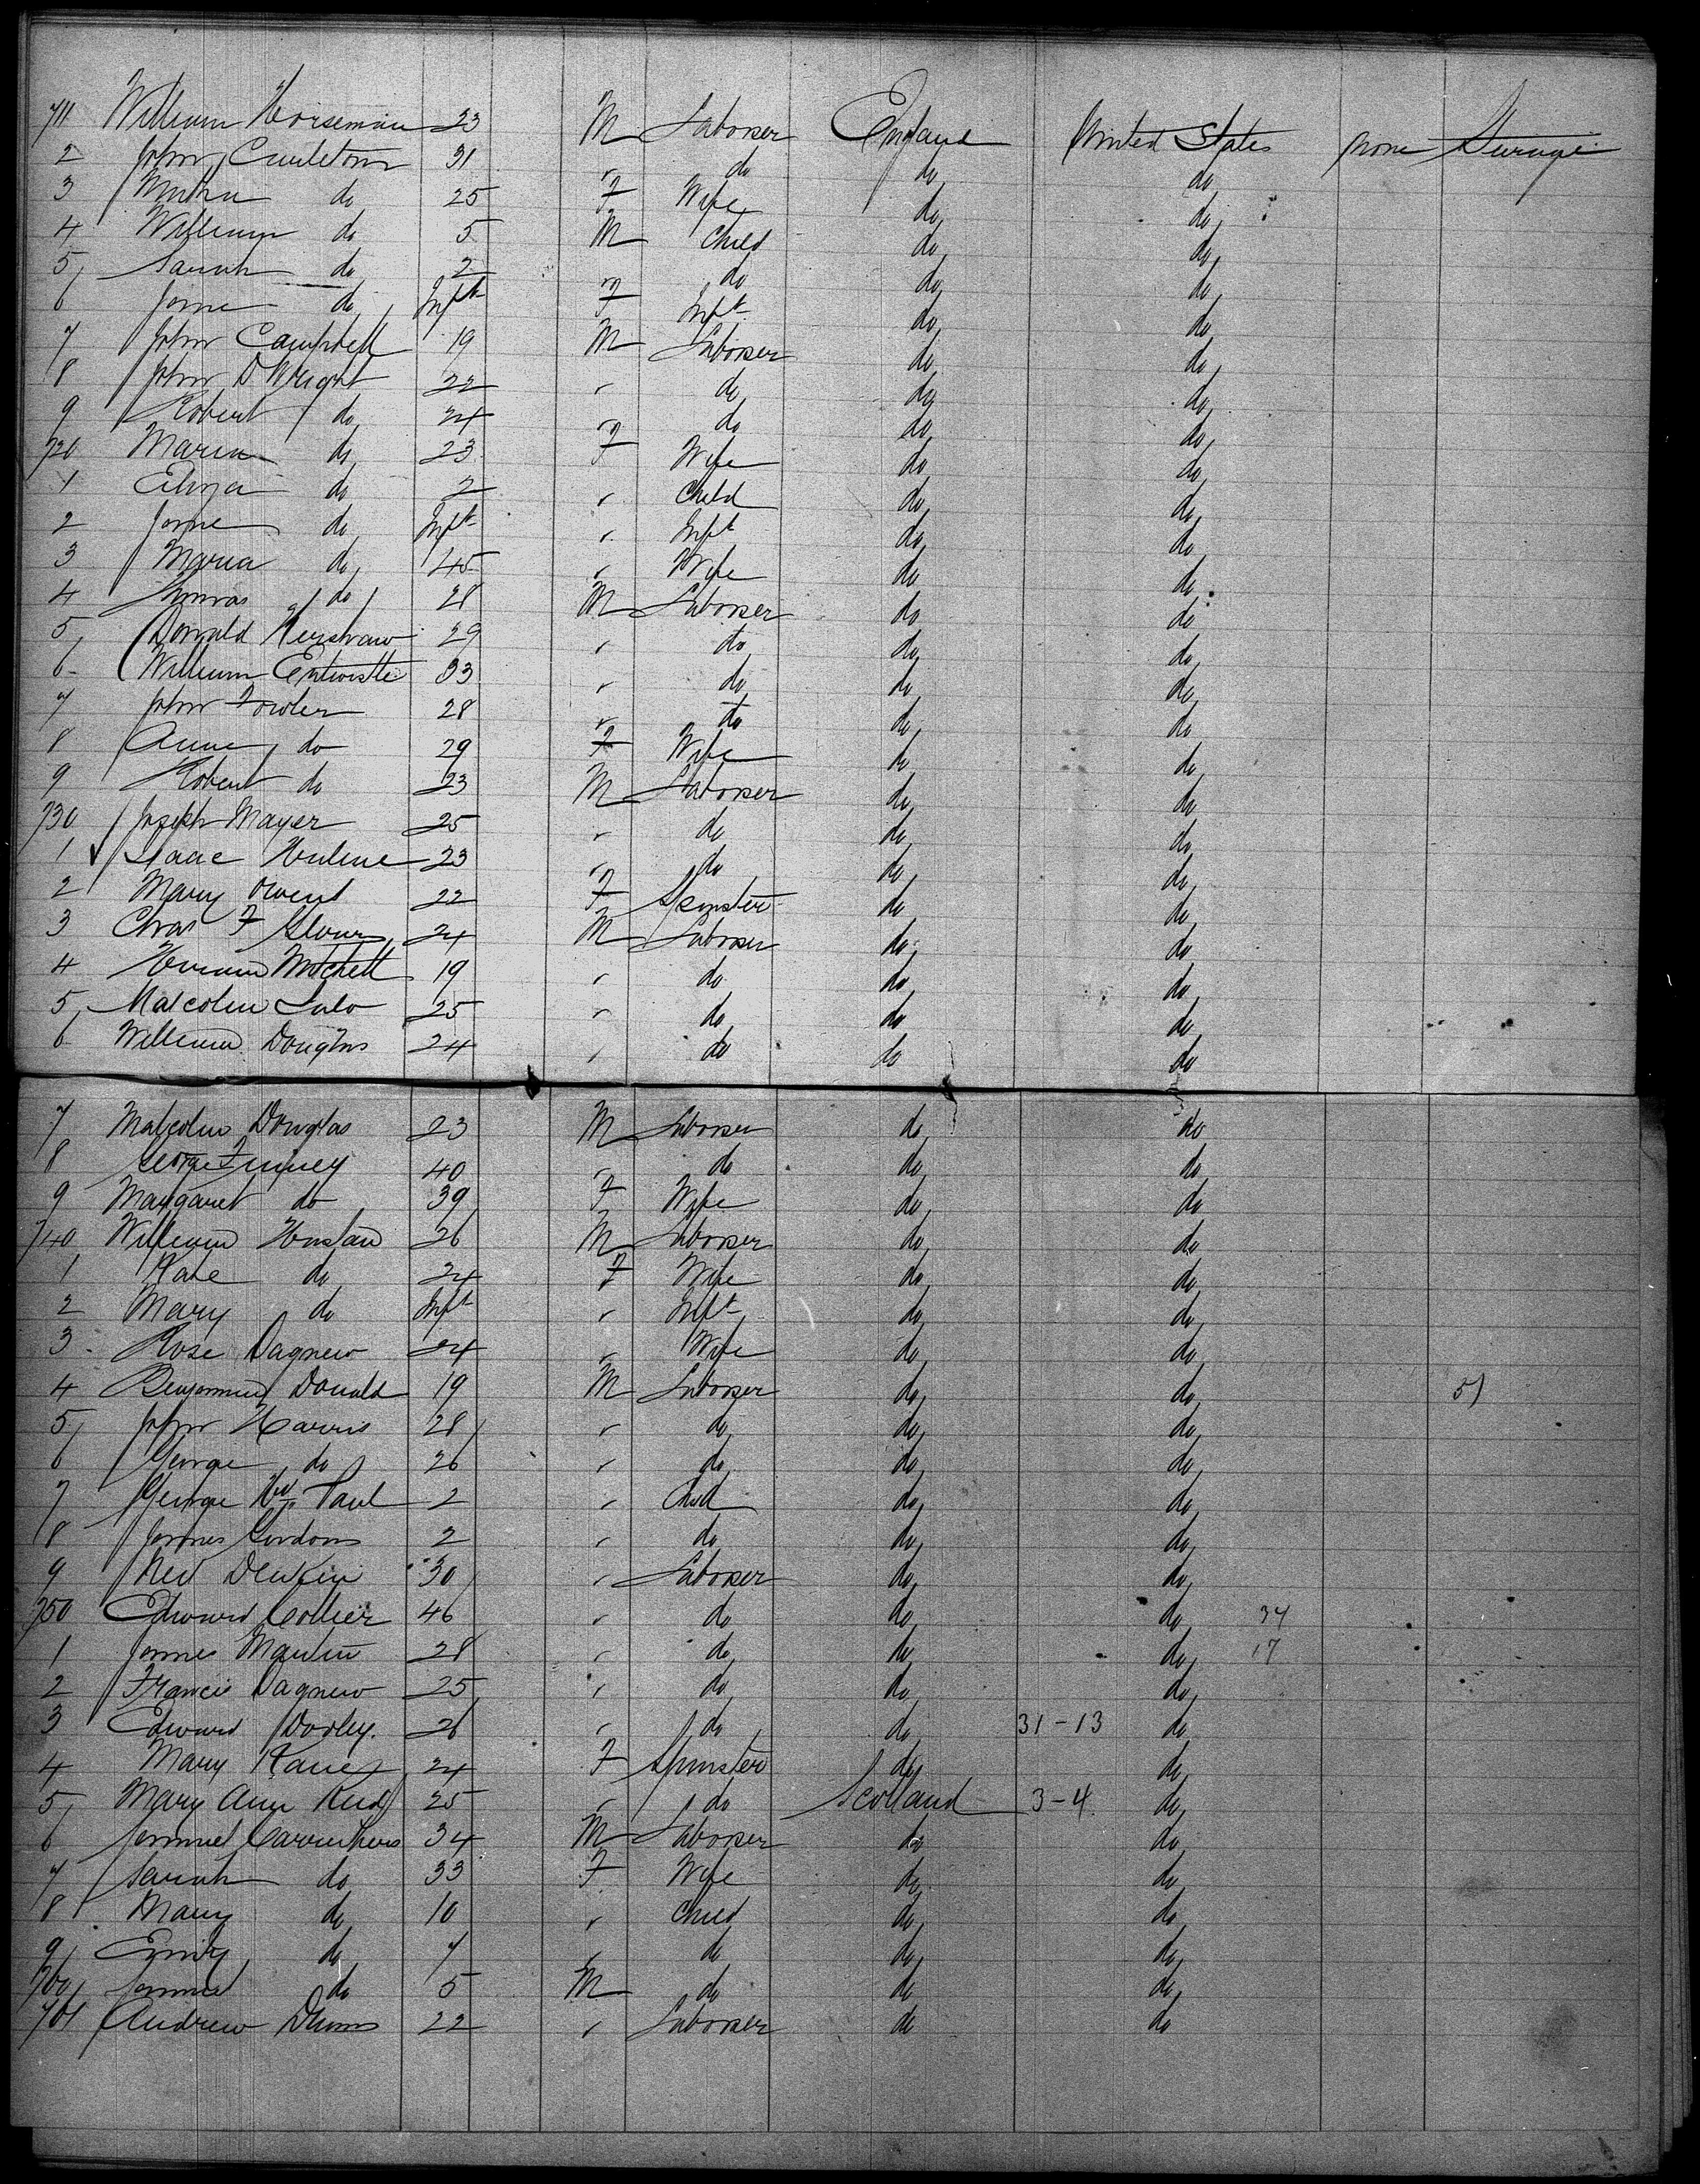 711 William Horseman 23 M Laborer England United States none Steerage
2 John Carleton 31 " do do do
3 Martha do 25 F Wife do do
4 William do 5 M Child do do
5 Sarah do 2 " do do do
6 Jane do Inft F Inft do do
7 John Campbell 19 M Laborer do do
8 John D Wright 22 " do do do
9 Robert do 24 " do do do
720 Maria do 23 F Wife do do
1 Eliza do 2 " Child do do
2 Jane do Inft " Inft do do
3 Maria do 45 " Wife do do
4 Thomas do 28 M Laborer do do
5 Donald Kershaw 29 " do do do
6 William Entwistle 33 " do do do
7 John Fowler 28 " do do do
8 Anne do 29 F Wife do do
9 Robert do 23 M Laborer do do
730 Joseph Mayer 25 " do do do
1 Isaac Hulme 23 " do do do
2 Mary 22 F Spinster do do
3 Chas F Glover 24 M Laborer do do
4 Mitchell 19 " do do do
5 Malcolm 25 " do do do
6 William Douglas 24 " do do do
7 Malcolm Douglas 23 M Laborer do do
8 George 40 " do do do
9 Margaret do 39 F Wife do do
740 William 26 M Laborer do do
1 Kate do 24 F Wife do do
2 Mary do Inft " Inft do do
3 Rose Dagnew 24 " Wife do do
4 Benjamin Donald 19 M Laborer do do 51
5 John Harris 28 " do do do
6 George do 26 " do do do
7 George Wm Paul 2 " Child do do
8 James Gordon 2 " do do do
9 30 " Laborer do do
750 Edward Collier 46 " do do do 34
1 James Martin 28 " do do do 17
2 Francis Dagnew 25 " do do do
3 Edward Dooley 26 " do do 31-13 do
4 Mary Kane 24 F Spinster do do
5 Mary Ann Reid 25 " do Scotland 3-4 do
6 Samuel Carruthers 34 M Laborer do do
7 Sarah do 33 F Wife do do
8 Mary do 10 " Child do do
9 Emily do 7 " do do do
760 Samuel do 5 M do do do
761 Andrew 22 " Laborer do do